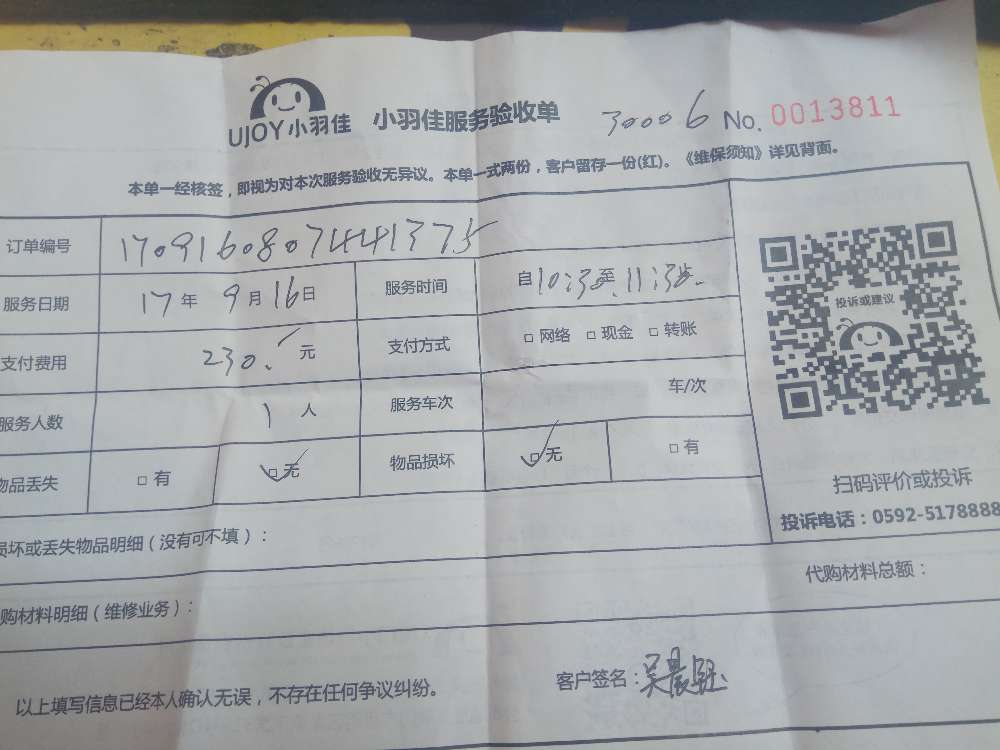 UJOY小羽佳 小羽佳服务验收单 30006 No. 0013811
本单一经核签，即视为对本次服务验收无异议。本单一式两份，客户留存一份(红)。《维保须知》详见背面。
订单编号 1709160807441375
服务日期 17年 9月 16日 服务时间 自10:30至 11:30
支付费用 230. 元 支付方式 □ 网络 □ 现金 □ 转账
服务人数 1 人 服务车次 车/次
物品丢失 □ 有 □ 无 物品损坏 □ 无 □ 有
投诉或建议
扫码评价或投诉
投诉电话：0592-5178888
损坏或丢失物品明细（没有可不填）：
购材料明细（维修业务）： 代购材料总额：
以上填写信息已经本人确认无误，不存在任何争议纠纷。 客户签名：吴晨